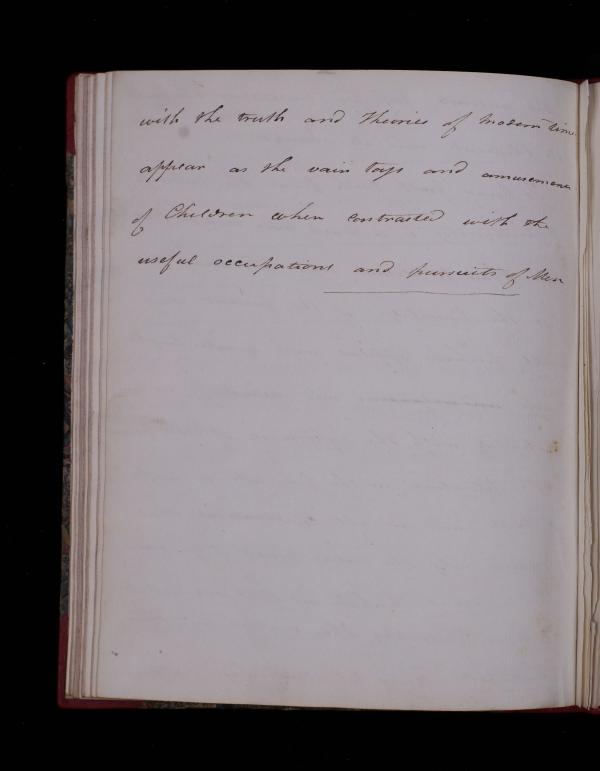 with the truth and Theories of Modern time
appear as the vain toys and amusement
of Children when contrasted with the
useful occupations and pursuits of Men